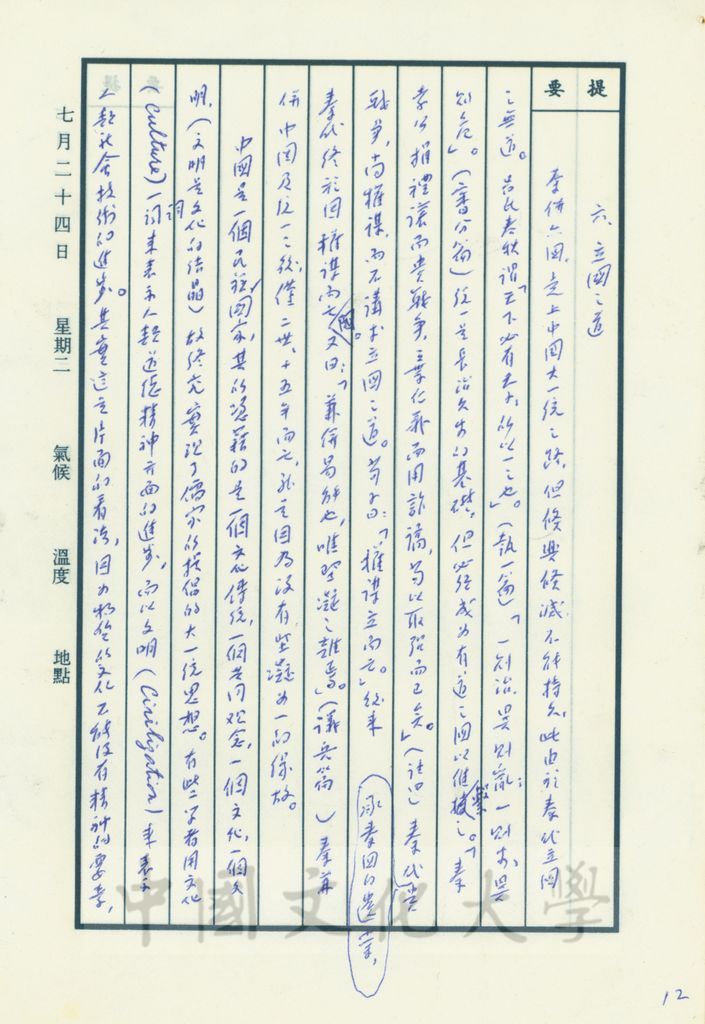 提要
六、立國之道
秦併六國,走上中國大一統之路,但倏興倏滅,不能持久,此由於秦代立國
之無道。呂氏春秋謂「天下必有天子,所以一之也。」(執一篇)「一則治,異則亂;一則安,異
則危」。(審分篇)統一是長治久安的基礎,但必須成為有道之國以維繫之。「秦
孝公捐禮讓而貴戰爭,棄仁義而用詐譎,苟以取強而已矣。」(註四)秦代貴
戰爭,尚權謀,而不講求立國之道。荀子曰:「權謀立而亡。」後來承秦國的遺業,
秦代終於因權謀而亡國。又曰:「兼併易能也,唯堅凝之難焉。」(議兵篇)秦兼
併中國及統一之後,僅二世,十五年而亡,就是因為沒有堅凝為一的緣故。
中國是一個民族國家,其所憑藉的是一個文化傳統,一個共同觀念,一個文化,一個文
明,(文明是文化的結晶)故終究實現了儒家所提倡的大一統思想。有些學者用文化
(Culture)一詞來表示人類道德精神方面的進步,而以文明(Civilization)來表示
人類社會技術的進步。其實這是片面的看法,因為物質的文化不能沒有精神的要素,
七月二十四日 星期二 氣候 溫度 地點
12
中國文化大學